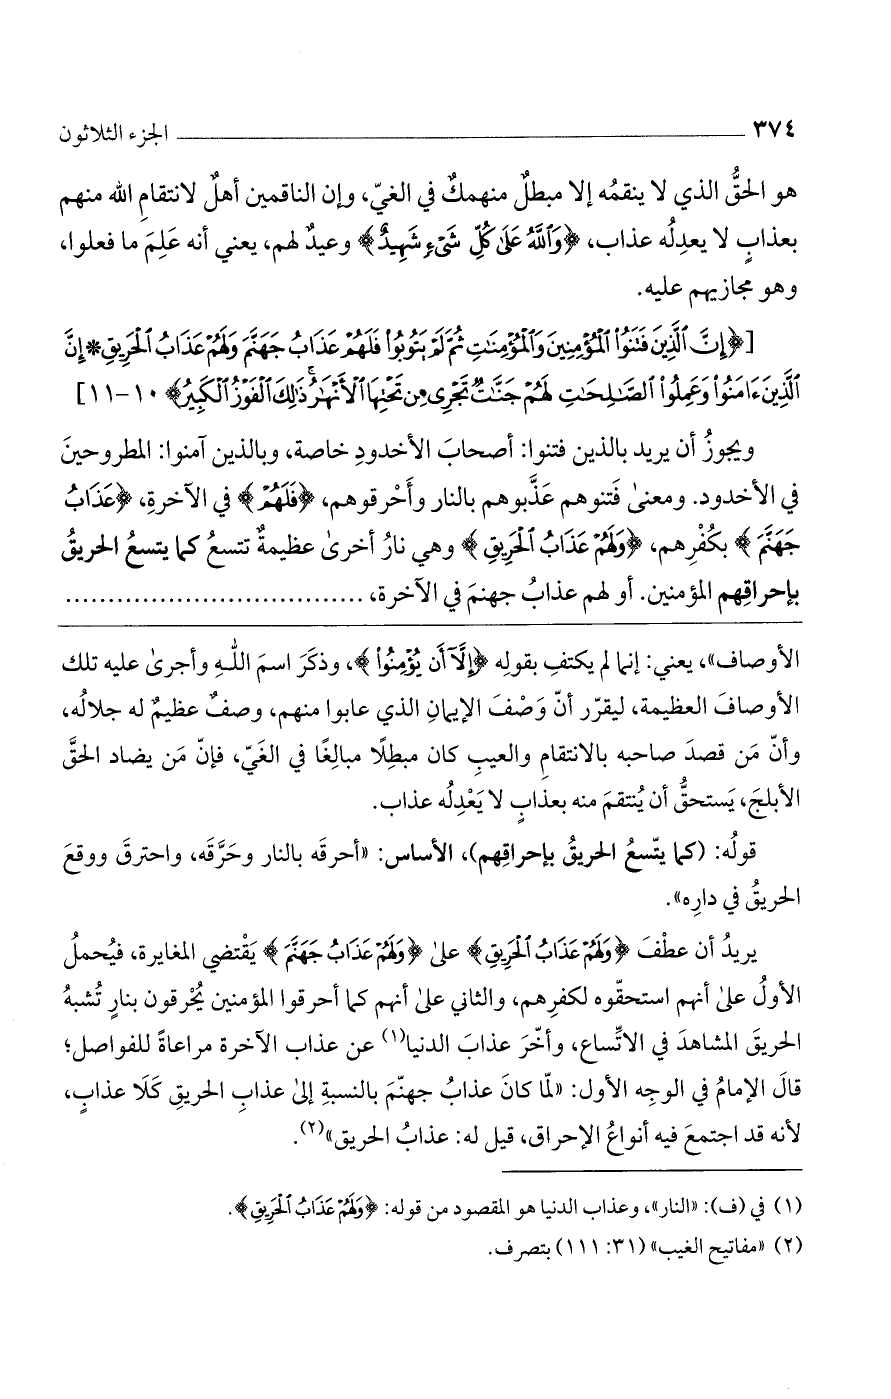 ٣٧٤ ــــــــــــــــــــــــــــــ الجزء الثلاثون
هو الحقُّ الذي لا ينقمُه إلا مبطلٌ منهمكٌ في الغيّ، وإن الناقمين أهلٌ لانتقامِ الله منهم
بعذابٍ لا يعدِلُه عذاب، ﴿وَٱللَّهُ عَلَىٰ كُلِّ شَىْءٍ شَهِيدٌ﴾ وعيدٌ لهم، يعني أنه عَلِمَ ما فعلوا،
وهو مجازيهم عليه.
[﴿إِنَّ ٱلَّذِينَ فَتَنُوا۟ ٱلْمُؤْمِنِينَ وَٱلْمُؤْمِنَـٰتِ ثُمَّ لَمْ يَتُوبُوا۟ فَلَهُمْ عَذَابُ جَهَنَّمَ وَلَهُمْ عَذَابُ ٱلْحَرِيقِ * إِنَّ
ٱلَّذِينَ ءَامَنُوا۟ وَعَمِلُوا۟ ٱلصَّـٰلِحَـٰتِ لَهُمْ جَنَّـٰتٌ تَجْرِى مِن تَحْتِهَا ٱلْأَنْهَـٰرُ ذَٰلِكَ ٱلْفَوْزُ ٱلْكَبِيرُ﴾ ١٠-١١]
ويجوزُ أن يريد بالذين فتنوا: أصحابَ الأخدودِ خاصة، وبالذين آمنوا: المطروحينَ
في الأخدود. ومعنىٰ فَتنوهم عَذَّبوهم بالنار وأَحْرقوهم، ﴿فَلَهُمْ﴾ في الآخرةِ، ﴿عَذَابُ
جَهَنَّمَ﴾ بكُفْرِهم، ﴿وَلَهُمْ عَذَابُ ٱلْحَرِيقِ﴾ وهي نارُ أخرىٰ عظيمةٌ تتسعُ كما يتسعُ الحريقُ
بإحراقِهم المؤمنين. أو لهم عذابُ جهنمَ في الآخرة، ..................................
الأوصاف»، يعني: إنما لم يكتفِ بقولِه ﴿إِلَّآ أَن يُؤْمِنُوا۟﴾، وذكَرَ اسمَ اللـهِ وأجرىٰ عليه تلك
الأوصافَ العظيمة، ليقرّر أنّ وَصْفَ الإيمانِ الذي عابوا منهم، وصفٌ عظيمٌ له جلالُه،
وأنّ مَن قصدَ صاحبه بالانتقامِ والعيبِ كان مبطِلًا مبالِغًا في الغَيّ، فإنّ مَن يضاد الحقَّ
الأبلجَ، يَستحقُّ أن يُنتقمَ منه بعذابٍ لا يَعْدِلُه عذاب.
قولُه: (كما يتّسعُ الحريقُ بإحراقِهم)، الأساس: «أحرقَه بالنار وحَرَّقَه، واحترقَ ووقعَ
الحريقُ في دارِه».
يريدُ أن عطْفَ ﴿وَلَهُمْ عَذَابُ ٱلْحَرِيقِ﴾ علىٰ ﴿وَلَهُمْ عَذَابُ جَهَنَّمَ﴾ يَقْتضي المغايرة، فيُحملُ
الأولُ علىٰ أنهم استحقّوه لكفرِهم، والثاني علىٰ أنهم كما أحرقوا المؤمنين يُحْرقون بنارٍ تُشبهُ
الحريقَ المشاهدَ في الاتِّساع، وأخّرَ عذابَ الدنيا(١) عن عذاب الآخرة مراعاةً للفواصل؛
قالَ الإمامُ في الوجِه الأول: «لمّا كانَ عذابُ جهنّمَ بالنسبةِ إلىٰ عذابِ الحريقِ كَلَا عذابٍ،
لأنه قد اجتمعَ فيه أنواعُ الإحراق، قيل له: عذابُ الحريق»(٢).
(١) في (ف): «النار»، وعذاب الدنيا هو المقصود من قوله: ﴿وَلَهُمْ عَذَابُ ٱلْحَرِيقِ﴾.
(٢) «مفاتيح الغيب» (٣١: ١١١) بتصرف.